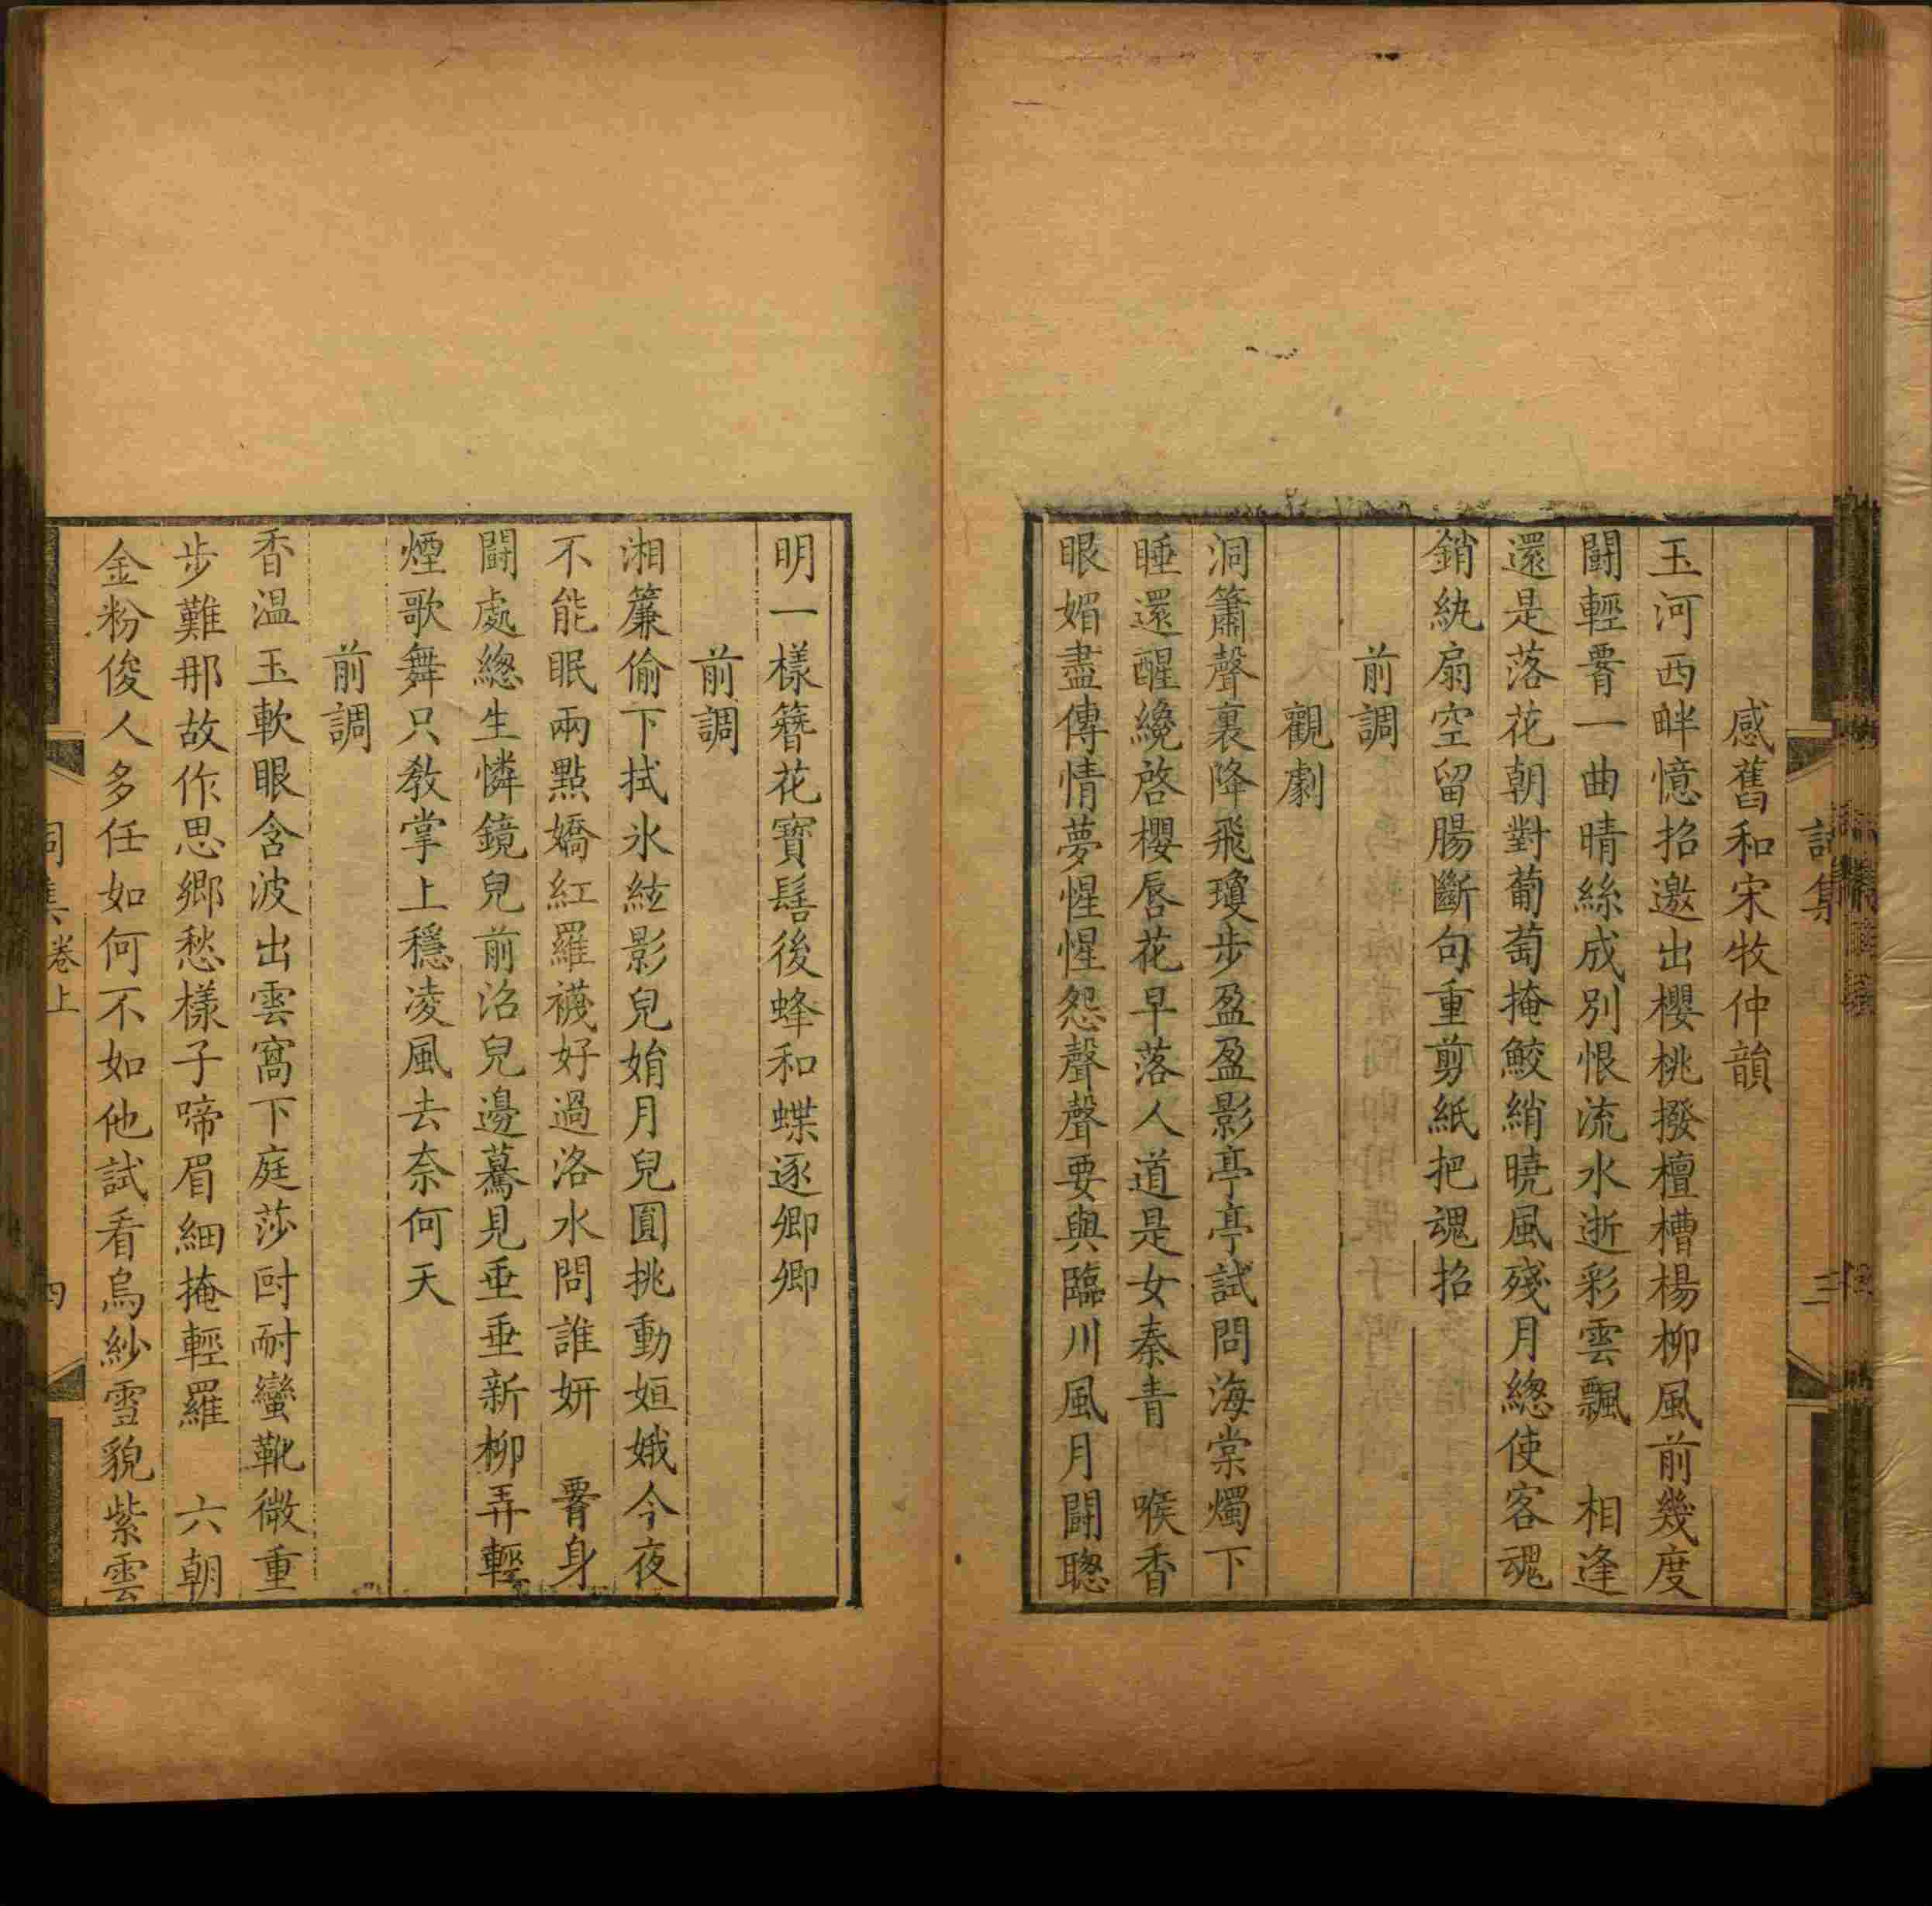 感舊和宋牧仲韻
玉河西畔憶招邀出櫻桃撥檀槽楊柳風前幾度
鬪輕䙚一曲晴絲成別恨流水逝彩雲飄　相逢
還是落花朝對葡萄掩鮫綃曉風殘月總使客魂
銷紈扇空留腸斷句重剪紙把魂招
前調
觀劇
洞簫聲裏降飛瓊步盈盈影亭亭試問海棠燭下
睡還醒纔啓櫻唇花早落人道是女秦青　喉香
眼媚盡傳情夢惺惺怨聲聲要與臨川風月鬪聰
明一樣簪花寶髻後蜂和蝶逐卿卿
前調
湘簾偷下拭氷紘影兒娟月兒圓挑動姮娥今夜
不能眠兩點嬌紅羅襪好過洛水問誰妍　䙚身
鬪處總生憐鏡兒前沼兒邊驀見垂垂新柳弄輕
煙歌舞只教掌上穩凌風去奈何天
前調
香温玉軟眼含波出雲窩下庭莎酎耐蠻靴微重
步難那故作思鄉愁樣子啼眉細掩輕羅　六朝
金粉俊人多任如何不如他試看烏紗雪貌紫雲
卷上